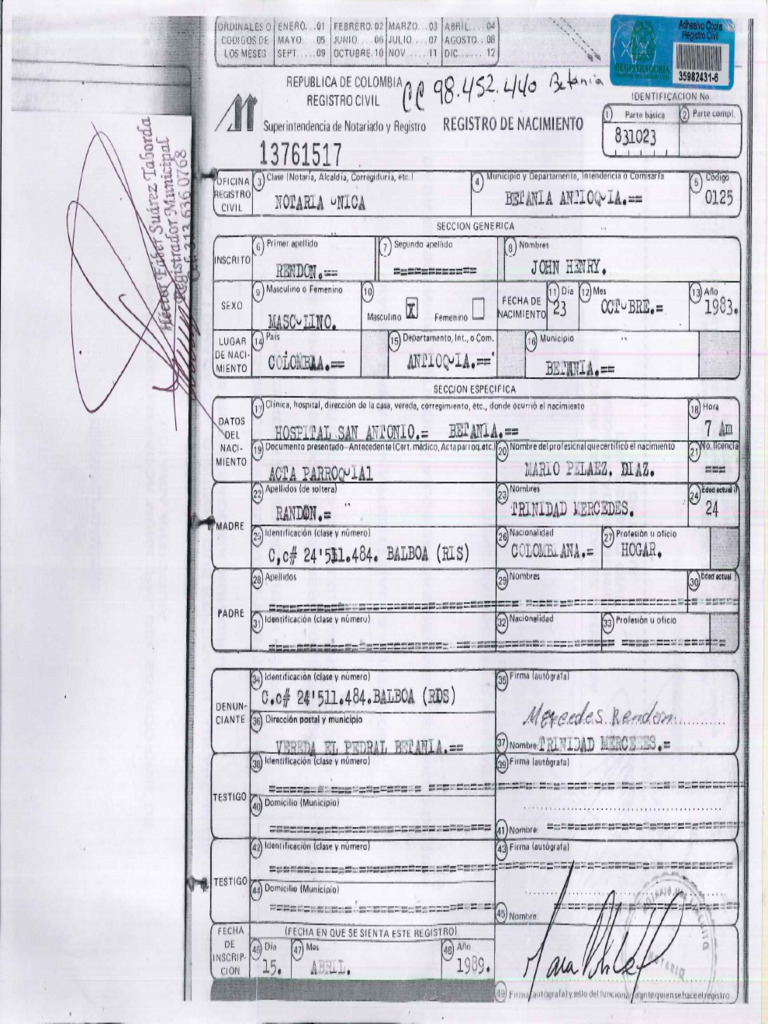 ORDINALES O CODIGOS DE LOS MESES
ENERO...01 FEBRERO 02 MARZO...03 ABRIL...04
MAYO 05 JUNIO...06 JULIO...07 AGOSTO..08
SEPT....09 OCTUBRE.10 NOV...11 DIC...12
Adhesivo Copia
Registro Civil
REGISTRADURIA
35982431-6
REPUBLICA DE COLOMBIA
REGISTRO CIVIL
CC 98.452.440 Betania
Superintendencia de Notariado y Registro
REGISTRO DE NACIMIENTO
13761517
IDENTIFICACION No
1 Parte básica 2 Parte compl.
831023
Héctor Faber Suárez Taborda
Registrador Municipal
Cel. 313 636 0768
OFICINA REGISTRO CIVIL
3 Clase (Notaría, Alcaldía, Corregiduría, etc.)
NOTARIA UNICA
4 Municipio y Departamento, Intendencia o Comisaría
BETANIA ANTIOQUIA.==
5 Código
0125
SECCION GENERICA
INSCRITO
6 Primer apellido
RENDON.==
7 Segundo apellido
===========
8 Nombres
JOHN HENRY.
SEXO
9 Masculino o Femenino
MASCULINO.
10
Masculino X Femenino
FECHA DE NACIMIENTO
11 Día
23
12 Mes
OCTUBRE.=
13 Año
1983.
LUGAR DE NACIMIENTO
14 País
COLOMBIA.==
15 Departamento, Int., o Com.
ANTIOQUIA.==
16 Municipio
BETANIA.==
SECCION ESPECIFICA
DATOS DEL NACIMIENTO
17 Clínica, hospital, dirección de la casa, vereda, corregimiento, etc., donde ocurrió el nacimiento
HOSPITAL SAN ANTONIO.= BETANIA.==
18 Hora
7 Am
19 Documento presentado-Antecedente (Cert. médico, Acta parroq. etc.)
ACTA PARROQUIAl
20 Nombre del profesional que certificó el nacimiento
MARIO PELAEZ. DIAZ.
21 No. licencia
===
MADRE
22 Apellidos (de soltera)
RANDON.=
23 Nombres
TRINIDAD MERCEDES.
24 Edad actual
24
25 Identificación (clase y número)
C,c# 24'511.484. BALBOA (RIS)
26 Nacionalidad
COLOMBIANA.=
27 Profesión u oficio
HOGAR.
PADRE
28 Apellidos
29 Nombres
30 Edad actual
31 Identificación (clase y número)
32 Nacionalidad
33 Profesión u oficio
DENUNCIANTE
34 Identificación (clase y número)
C.c# 24'511.484.BALBOA (RDS)
35 Firma (autógrafa)
Mercedes Rendon
36 Dirección postal y municipio
VEREDA EL PEDRAL BETANIA.==
37 Nombre: TRINIDAD MERCEDES.=
TESTIGO
38 Identificación (clase y número)
39 Firma (autógrafa)
40 Domicilio (Municipio)
41 Nombre:
TESTIGO
42 Identificación (clase y número)
43 Firma (autógrafa)
44 Domicilio (Municipio)
45 Nombre:
FECHA DE INSCRIPCION
(FECHA EN QUE SE SIENTA ESTE REGISTRO)
46 Día
15.
47 Mes
ABRIL.
48 Año
1989.
49 Firma (autógrafa) y sello del funcionario ante quien se hace el registro